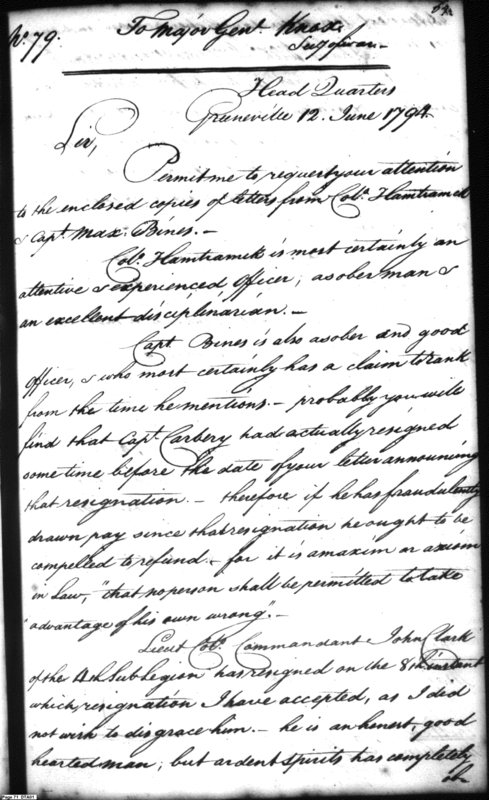 No. 79.
To Major Genl. Knox
Secy of war.
Head Quarters
Greeneville 12. June 1794.
Sir,
Permit me to request your attention
to the enclosed copies of letters from Colo. Hamtramck
& Capt. Max. Bines. —
Colo. Hamtramck is most certainly an
attentive & experienced Officer, a sober man &
an excellent disciplinarian. —
Capt. Bines is also a sober and good
Officer, & who most certainly has a claim to rank
from the time he mentions. — probably you will
find that Capt. Carbery had actually resigned
some time before the date of your letter announcing
that resignation. — therefore if he has fraudulently
drawn pay since that resignation he ought to be
compelled to refund. — for it is a maxim or axiom
in Law, "that no person shall be permitted to take
"advantage of his own wrong". —
Lieut Colo. Commandant John Clark
of the 4th Sub Legion has resigned on the 8th. instant
which resignation I have accepted, as I did
not wish to disgrace him. — he is an honest, good
hearted man; but ardent spirits has completely
Page 71 07A01